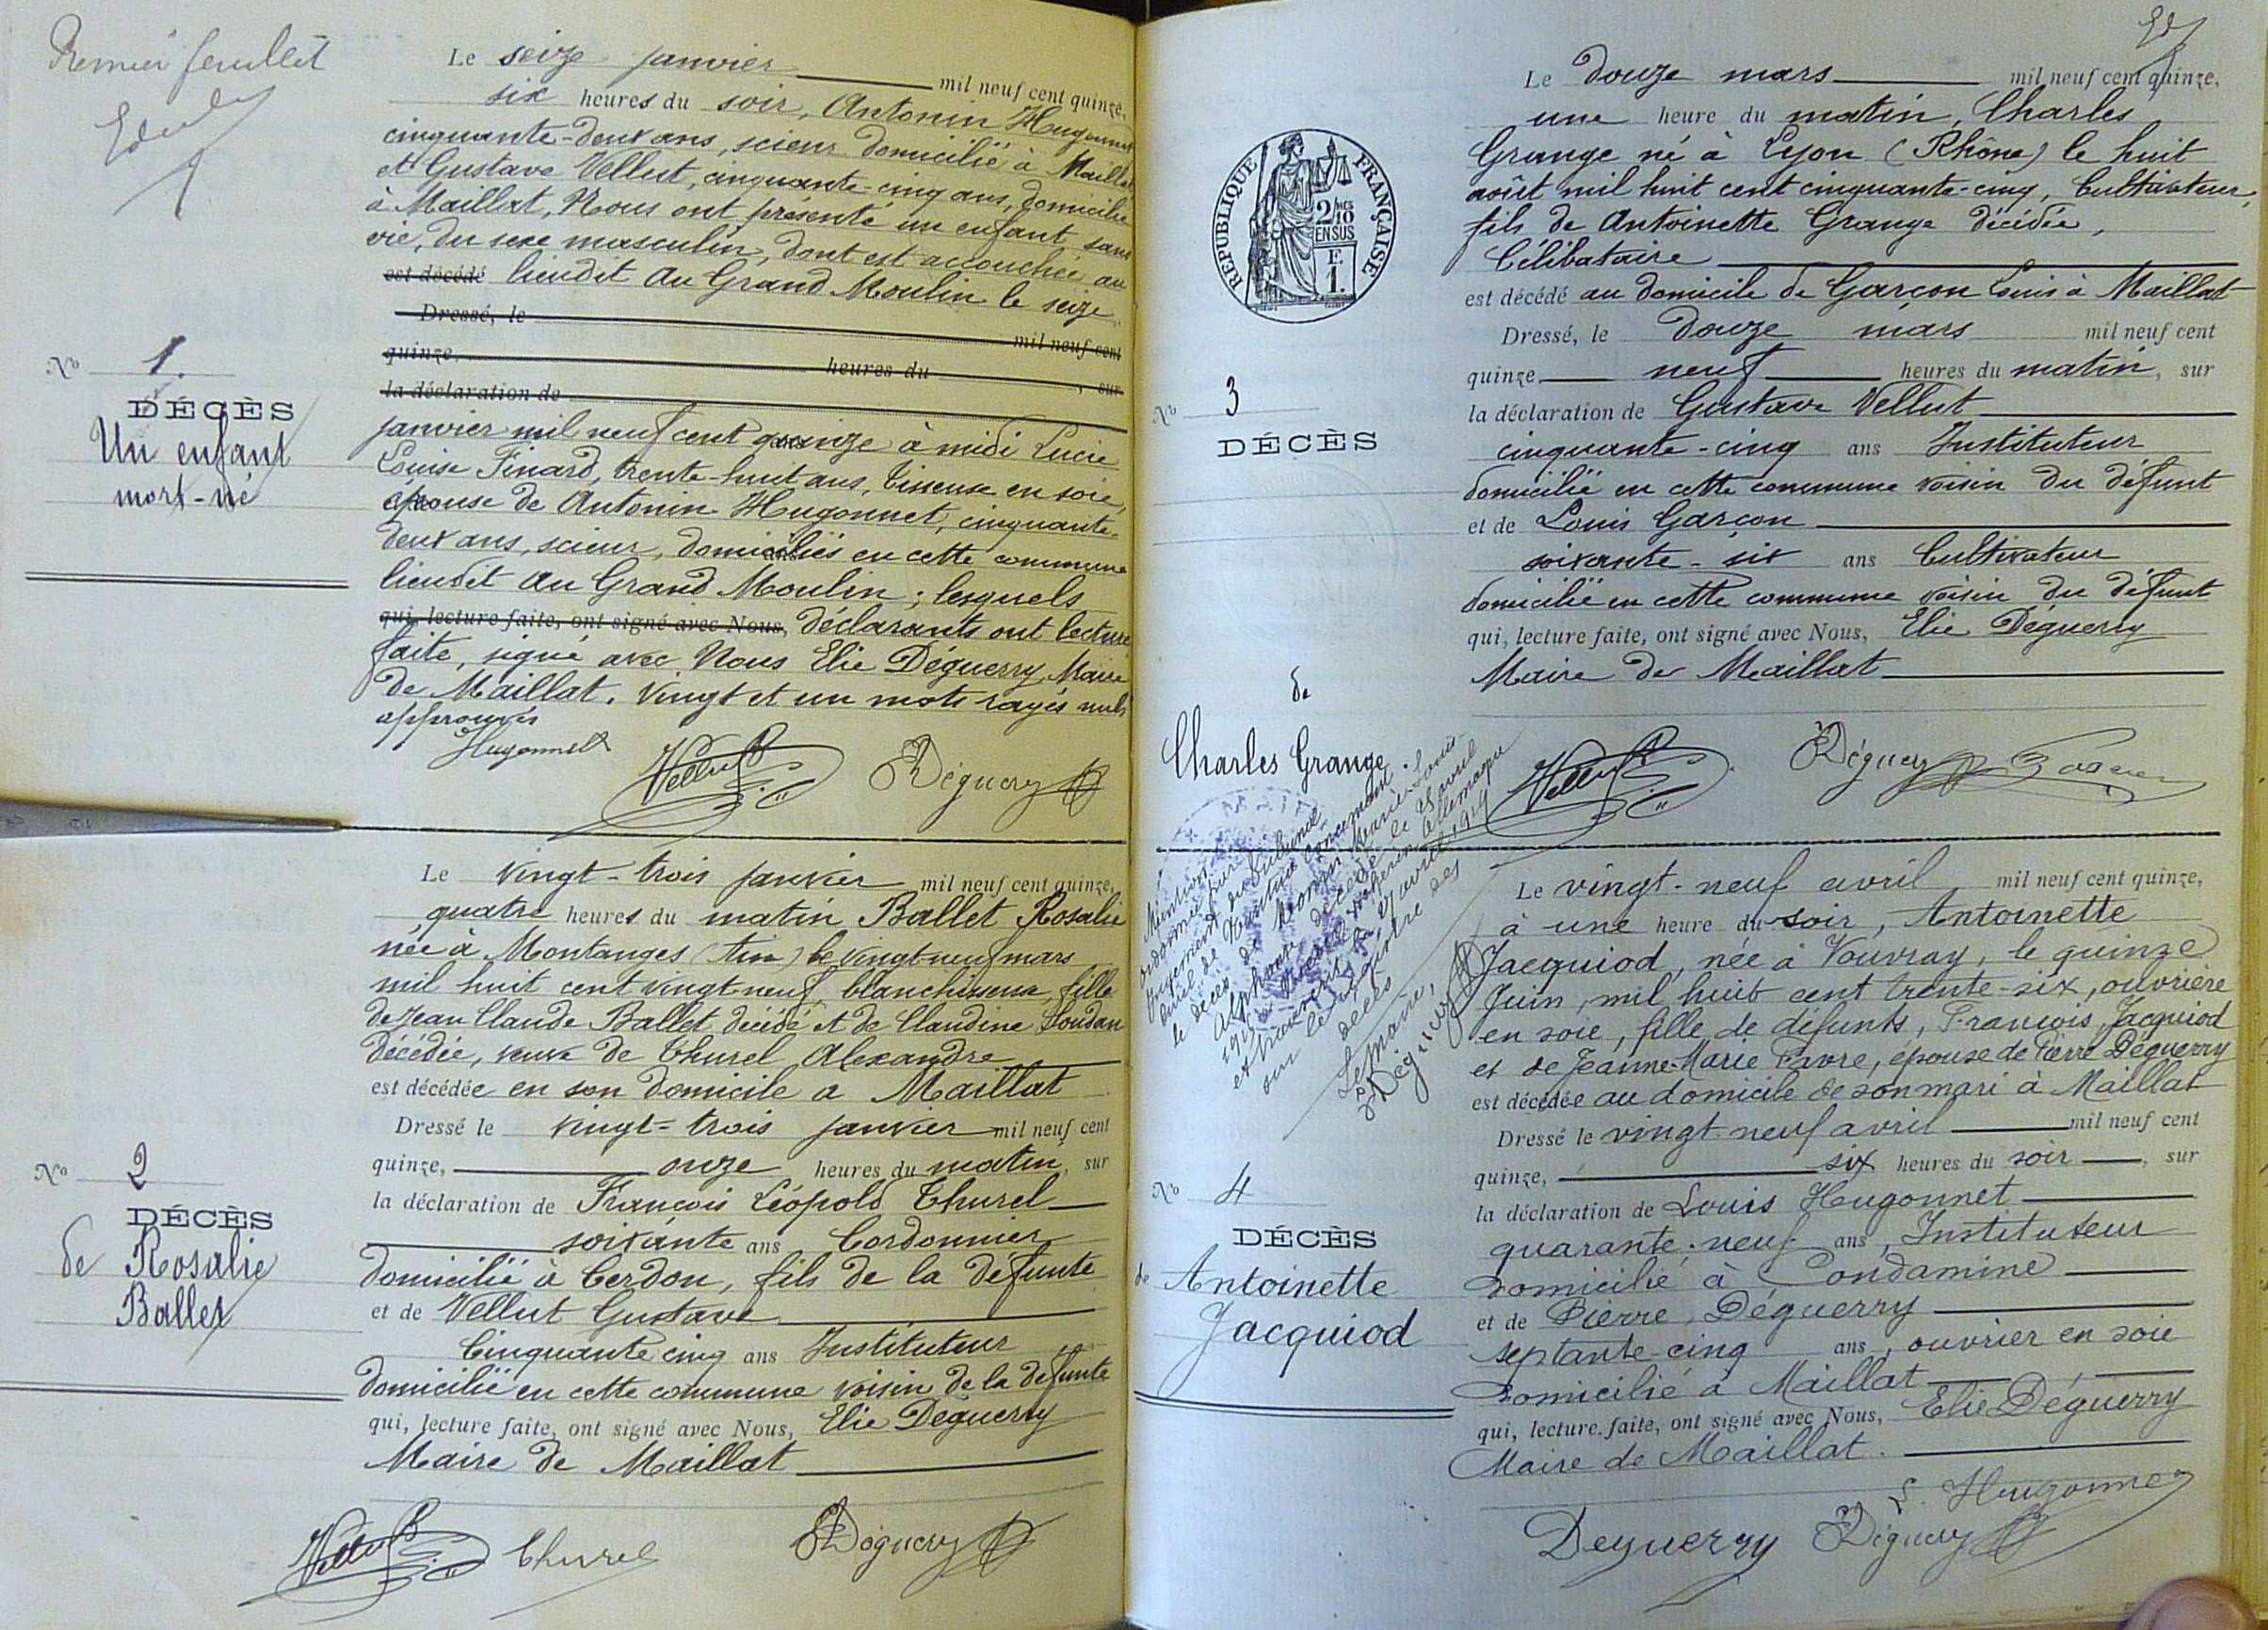 Premier feuillet
Le seize janvier mil neuf cent quinze,
six heures du soir, Antonin Hugonnet
cinquante-deux ans, scieur domicilié à Maillat
et Gustave Vellut, cinquante-cinq ans, domicilié
à Maillat, Nous ont présenté un enfant sans
vie, du sexe masculin, dont est accouchée au
est décédé lieudit au Grand Moulin le seize
Dressé, le mil neuf cent
quinze, heures du , sur
la déclaration de
janvier mil neuf cent quinze à midi Lucie
Louise Finard, trente-huit ans, tisseuse en soie,
épouse de Antonin Hugonnet, cinquante-
deux ans, scieur, domiciliés en cette commune
lieudit au Grand Moulin ; lesquels
qui, lecture faite, ont signé avec Nous, déclarants ont lecture
faite, signé avec Nous Elie Déguerry, Maire
de Maillat. Vingt et un mots rayés nuls
approuvés
Hugonnet Vellut Déguerry
No 1.
DÉCÈS
Un enfant
mort-né
Le vingt-trois janvier mil neuf cent quinze,
quatre heures du matin Ballet Rosalie
née à Montanges (Ain) le vingt-neuf mars
mil huit cent vingt-neuf, blanchisseuse, fille
de Jean Claude Ballet décédé et de Claudine Soudan
décédée, veuve de Thurel Alexandre
est décédée en son domicile a Maillat
Dressé le vingt-trois janvier mil neuf cent
quinze, onze heures du matin, sur
la déclaration de François Léopold Thurel
soixante ans Cordonnier
domicilié à Cerdon, fils de la défunte
et de Vellut Gustave
Cinquante cinq ans Instituteur
domicilié en cette commune voisin de la défunte
qui, lecture faite, ont signé avec Nous, Elie Déguerry
Maire de Maillat
Vellut Thurel Déguerry
No 2
DÉCÈS
de Rosalie
Ballet
Le douze mars mil neuf cent quinze,
une heure du matin, Charles
Grange né à Lyon (Rhône) le huit
août mil huit cent cinquante-cinq, Cultivateur,
fils de Antoinette Grange décédée,
Célibataire
est décédé au domicile de Garçon Louis à Maillat
Dressé, le douze mars mil neuf cent
quinze neuf heures du matin, sur
la déclaration de Gustave Vellut
cinquante-cinq ans Instituteur
domicilié en cette commune voisin du défunt
et de Louis Garçon
soixante-six ans Cultivateur
domicilié en cette commune voisin du défunt
qui, lecture faite, ont signé avec Nous, Elie Déguerry
Maire de Maillat
Vellut Déguerry
RÉPUBLIQUE FRANÇAISE
2/10
EN SUS
E.
1.
No 3
DÉCÈS
de
Charles Grange
Mention
ordonnée par
jugement du Tribunal
civil de Nantua concernant
le décès de
Alphonse décédé le avril
1915 Allemagne
avril 1919
sur le registre des
décès
Le maire,
Déguerry
Le vingt-neuf avril mil neuf cent quinze,
à une heure du soir, Antoinette
Jacquiod, née à Vouvray, le quinze
Juin, mil huit cent trente-six, ouvrière
en soie, fille de défunts, François Jacquiod
et de Jeanne-Marie Favre, épouse de Pierre Déguerry
est décédée au domicile de son mari à Maillat
Dressé le vingt-neuf avril mil neuf cent
quinze, six heures du soir, sur
la déclaration de Louis Hugonnet
quarante-neuf ans, Instituteur
domicilié à Condamine
et de Pierre Déguerry
septante-cinq ans, ouvrier en soie
domicilié à Maillat
qui, lecture faite, ont signé avec Nous, Elie Déguerry
Maire de Maillat.
L. Hugonnet
Deguerry Déguerry
No 4
DÉCÈS
de Antoinette
Jacquiod